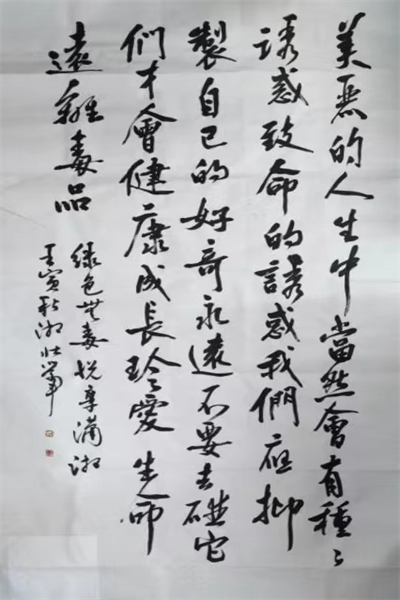 美惡的人生中當然會有種々
誘惑致命的誘惑我們應抑
製自己的好奇永遠不要去碰它
們才會健康成長珍愛生命
遠離毒品
綠色無毒悅享瀟湘
壬寅秋湘